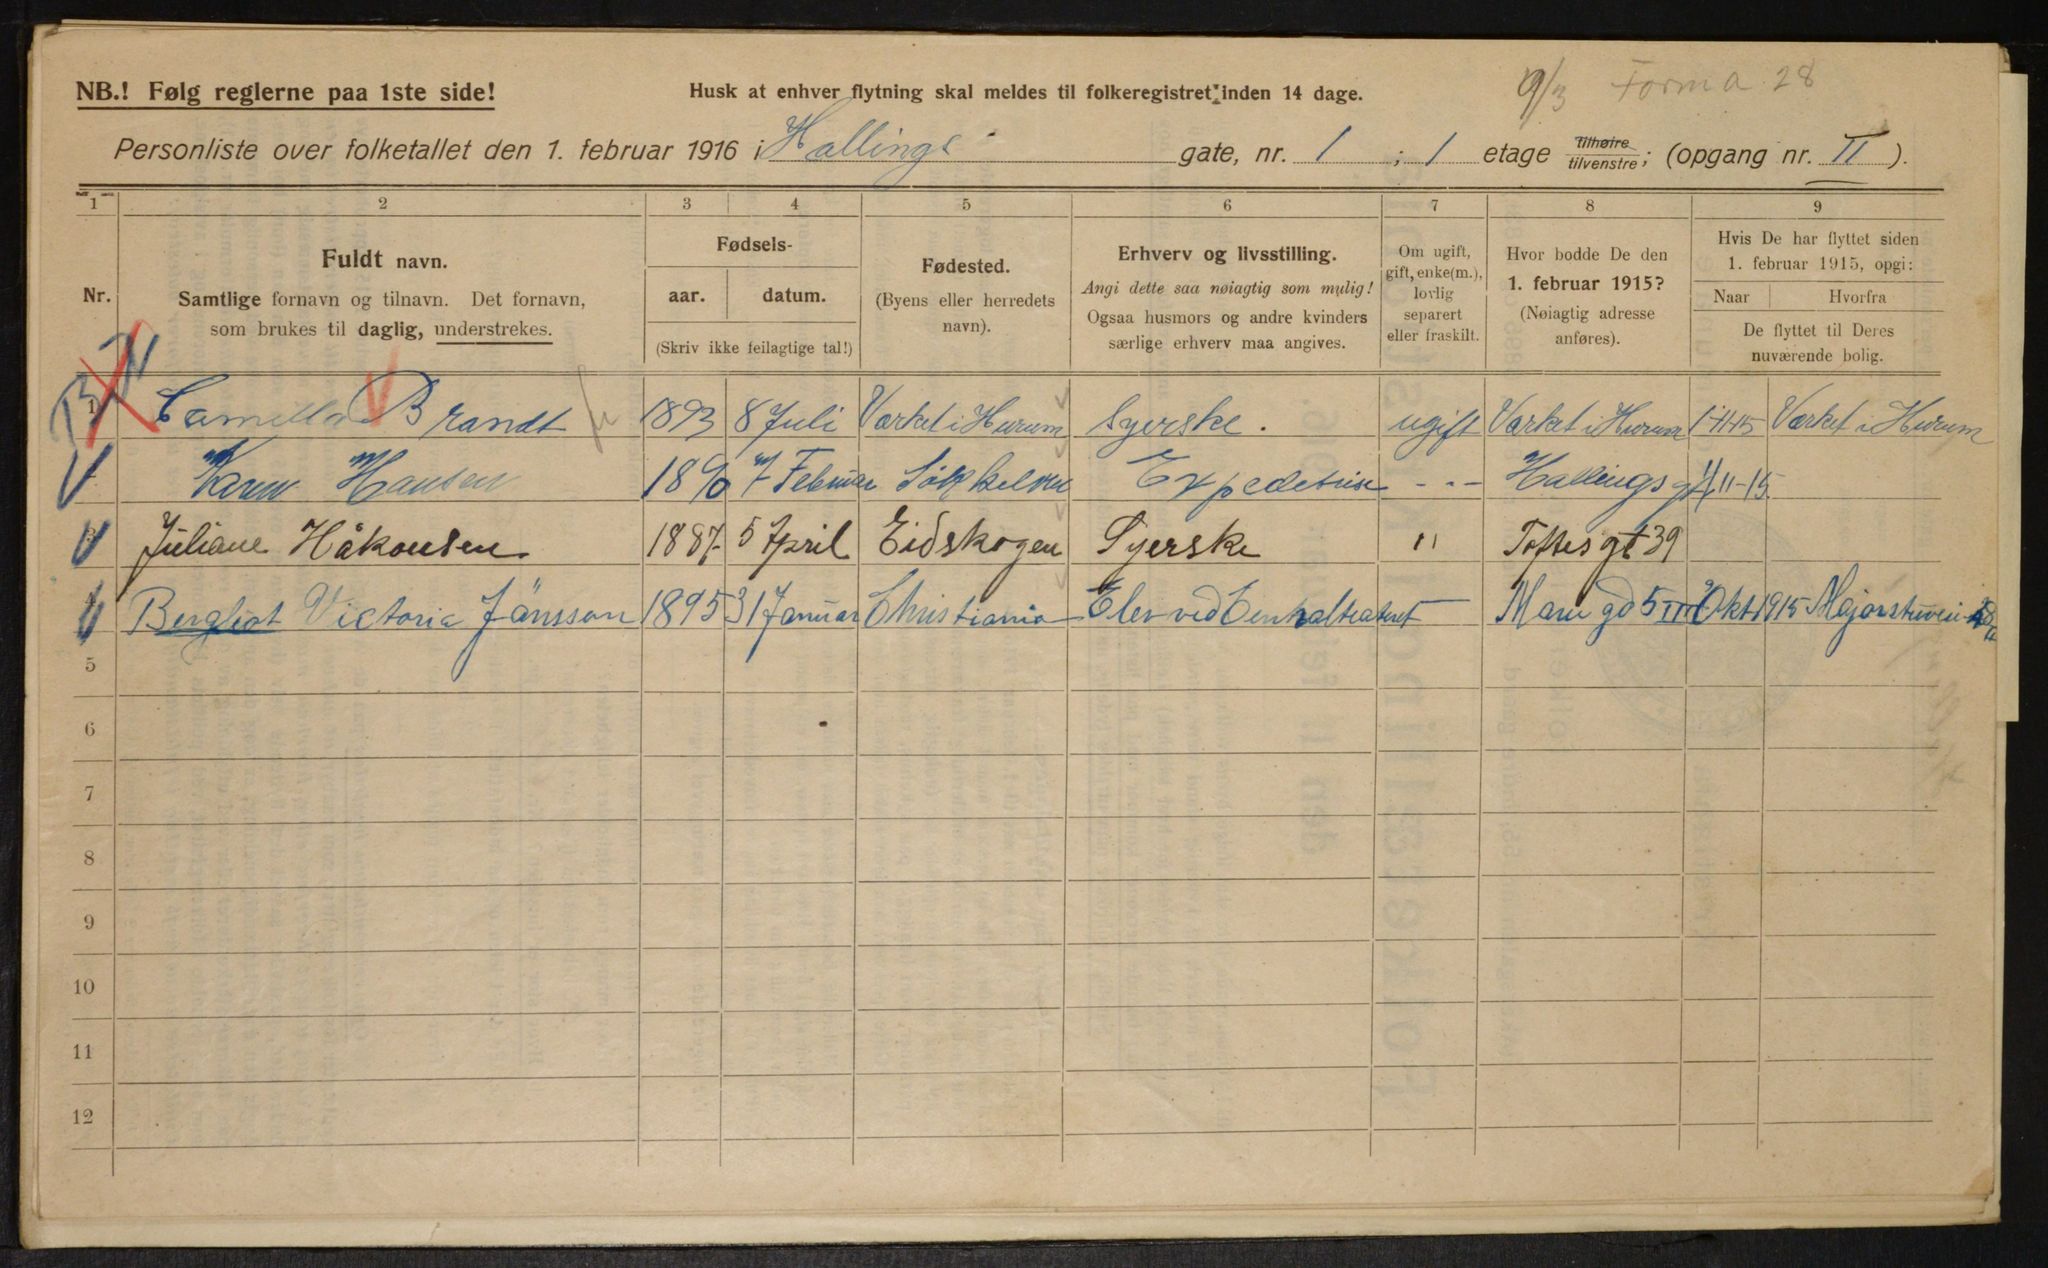 NB.! Følg reglerne paa 1ste side!
Husk at enhver flytning skal meldes til folkeregistret inden 14 dage.
9/3 Forma 28
Personliste over folketallet den 1. februar 1916 i Hallings gate, nr. 1 ; 1 etage tilhøire tilvenstre; (opgang nr. II ).
1 2 3 4 5 6 7 8 9
Nr.
Fuldt navn.
Samtlige fornavn og tilnavn. Det fornavn,
som brukes til daglig, understrekes.
Fødsels-
aar. datum.
(Skriv ikke feilagtige tal!)
Fødested.
(Byens eller herredets
navn).
Erhverv og livsstilling.
Angi dette saa nøiagtig som mulig!
Ogsaa husmors og andre kvinders
særlige erhverv maa angives.
Om ugift,
gift, enke(m.),
lovlig
separert
eller fraskilt.
Hvor bodde De den
1. februar 1915?
(Nøiagtig adresse
anføres).
Hvis De har flyttet siden
1. februar 1915, opgi:
Naar Hvorfra
De flyttet til Deres
nuværende bolig.
1 Camilla Brandt 1893 8 Juli Værket i Hurum Syerske. ugift Værket i Hurum 1-11-15 Værket i Hurum
Karen Hansen 1890 7 Februar Expedetrise - - - Hallings gt 11-15
3 Juliane Håkonsen 1887 5 April Eidskogen Syerske " Toftes gt 39
4 Bergliot Victoria Jänsson 1895 31 Januar Christiania Elev ved Centralteatret Okt 1915
5
6
7
8
9
10
11
12